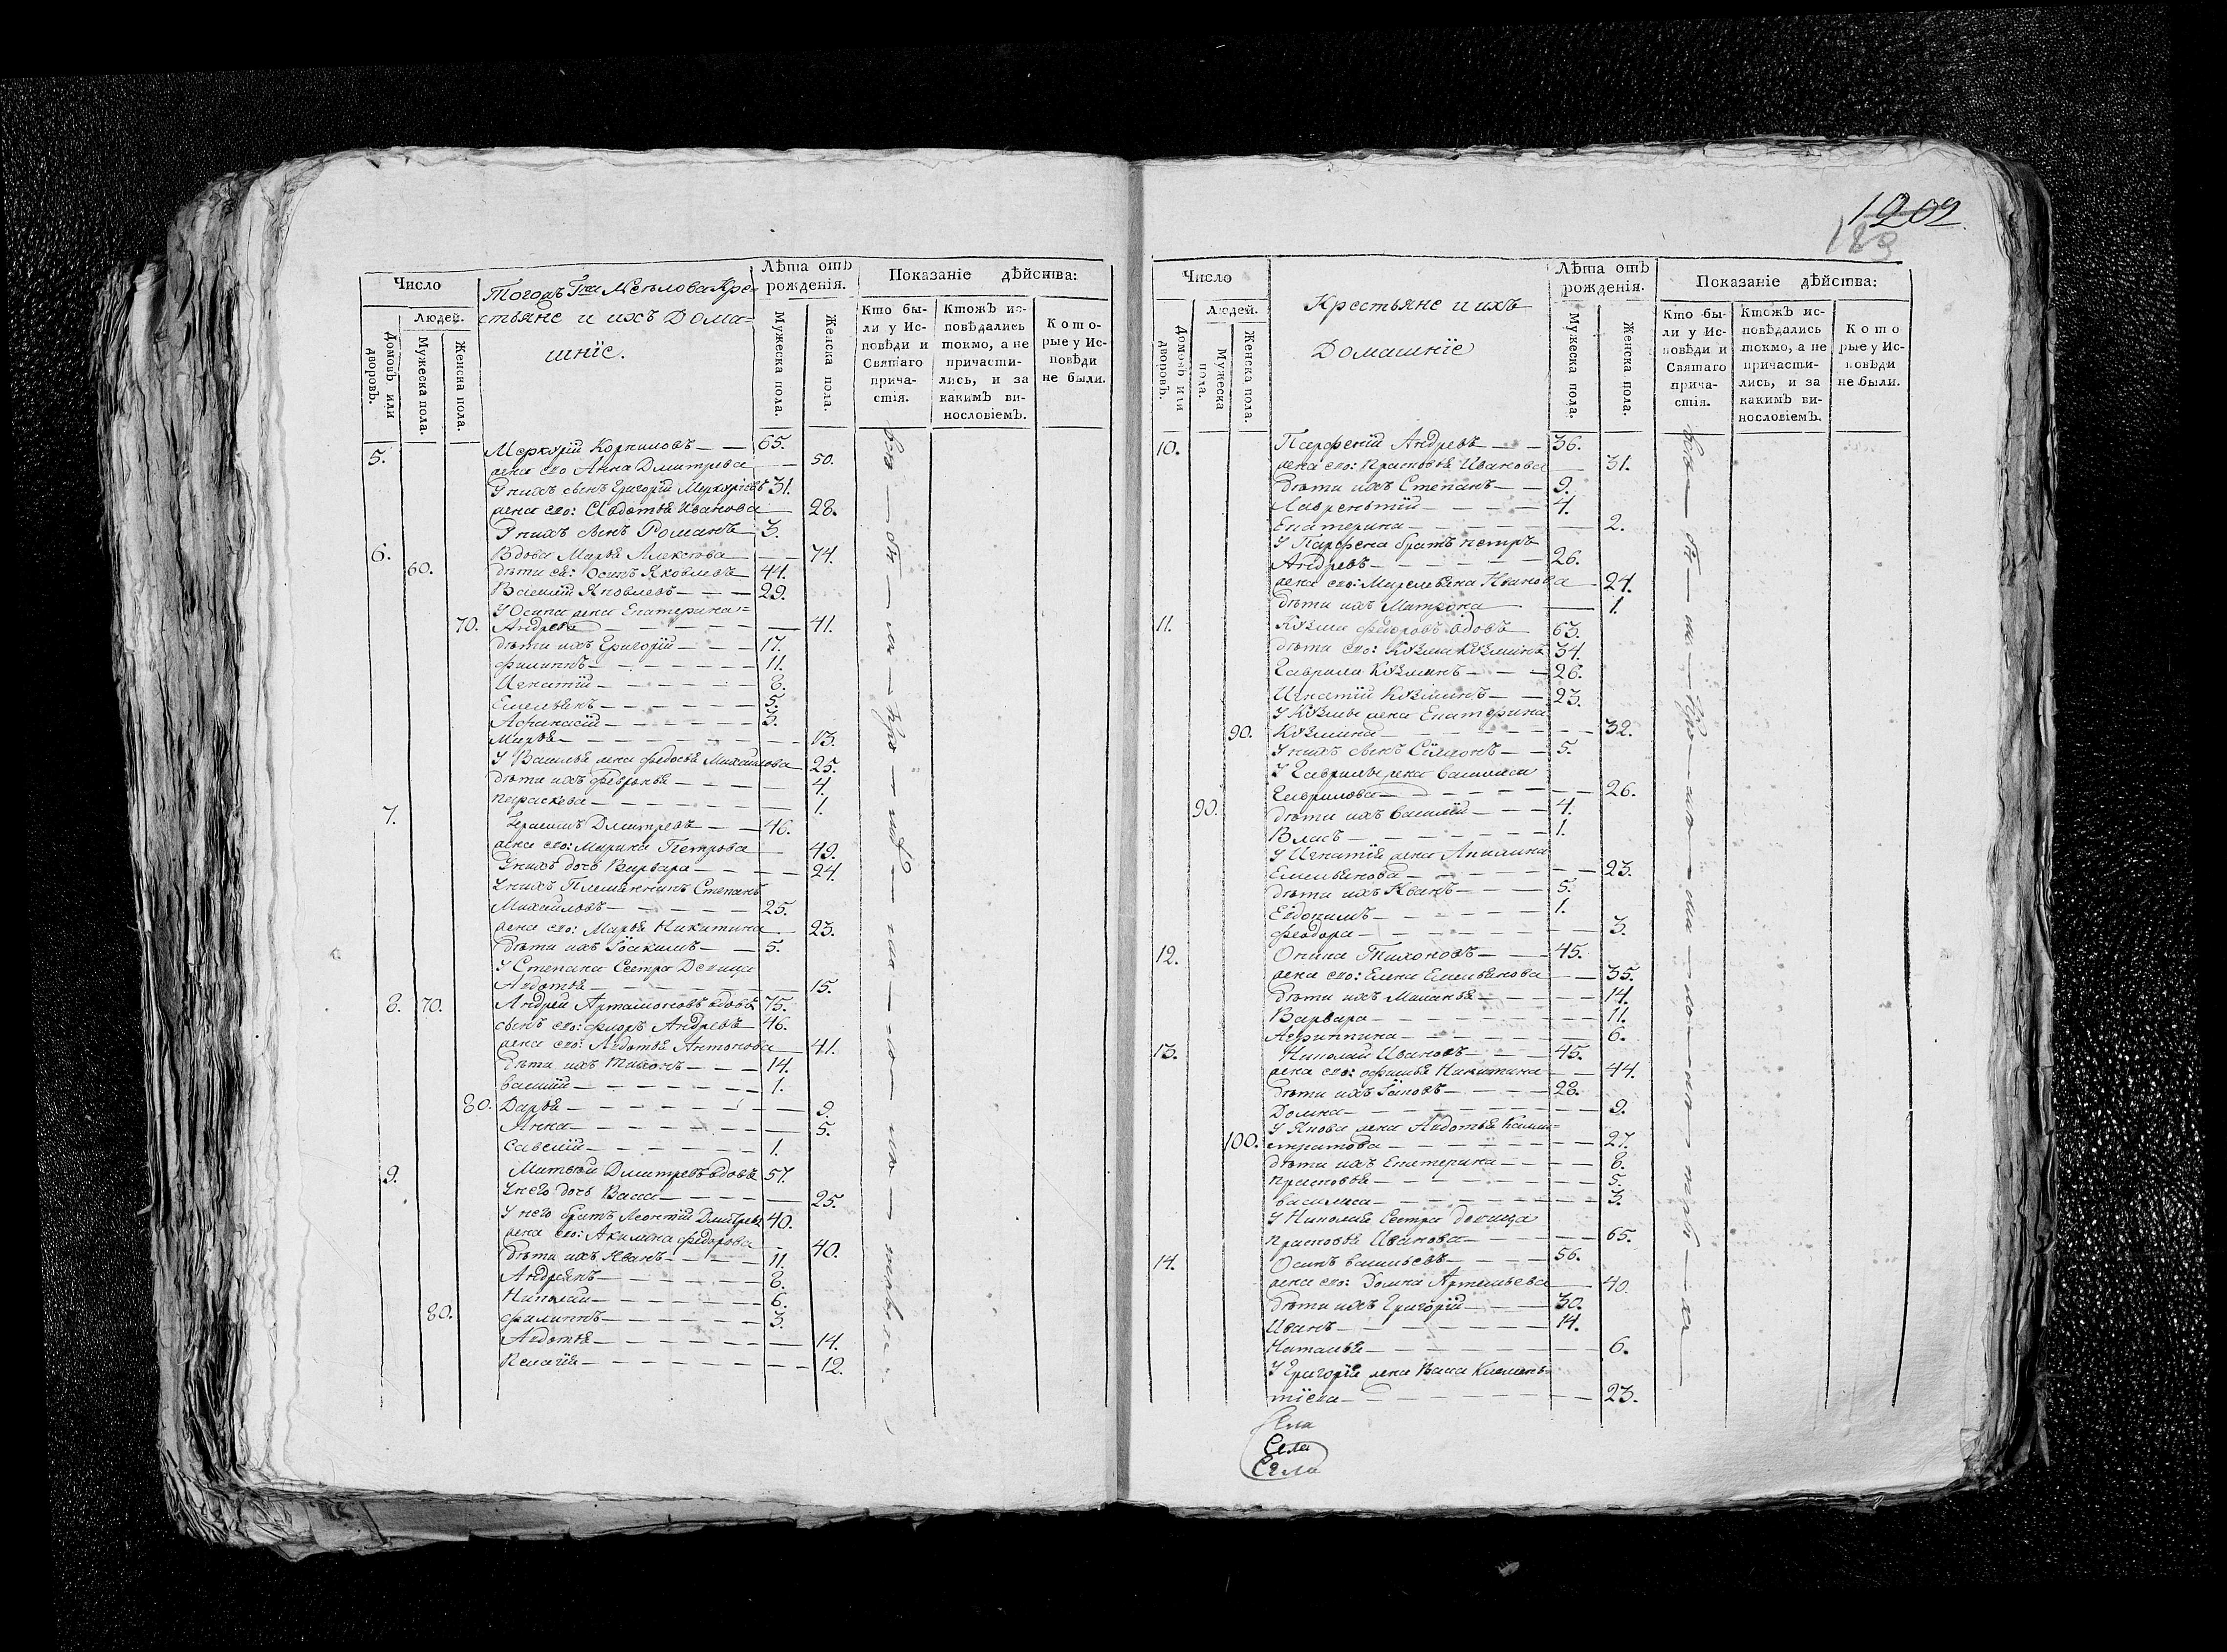 1202
183
Число
Тогожъ Гна Мѣлова Кре-
стьяне и ихъ Дома-
шніе.
Лѣта отъ рожденія.
Показаніе дѣйства:
Домовъ или дворовъ.
Людей.
Мужеска пола.
Женска пола.
Мужеска пола.
Женска пола.
Кто бы-
ли у Ис-
повѣди и
Святаго
прича-
стія.
Ктожъ ис-
повѣдались
токмо, а не
причасти-
лись, и за
какимъ ви-
нословіемъ.
Кото-
рые у Ис-
повѣди
не были.
5. Меркурій Корниловъ 65.
жена его Анна Дмитрева 50.
У нихъ сынъ Григорій Меркуріевъ 31.
жена его: Авдотья Иванова 28.
У нихъ сынъ Романъ 3.
6. Вдова Марья Алексѣева 74.
60. дѣти ея: Осипъ Яковлевъ 44.
Василій Яковлевъ 29.
У Осипа жена Екатерина
70. Андрева 41.
дѣти ихъ Григорій 17.
Филиппъ 11.
Игнатій 8.
Емельянъ 5.
Афанасій 3.
Марья 13.
У Василья жена Федосья Михайлова 25.
дѣти ихъ Февронья 4.
Параскева 1.
7. Герасимъ Дмитревъ 46.
жена его: Марина Петрова 49.
У нихъ дочь Варвара 24.
У нихъ Племянникъ Степанъ
Михайловъ 25.
жена его: Марья Никитина 23.
дѣти ихъ Іоакимъ 5.
У Степана Сестра Девица
Авдотья 15.
8. 70. Андрей Артамоновъ вдовъ 75.
сынъ его: Флоръ Андревъ 46.
жена его: Авдотья Антонова 41.
дѣти ихъ Тихонъ 14.
Василій 1.
80. Дарья 9.
Анна 5.
Савелій 1.
9. Митвѣй Дмитревъ вдовъ 57.
У него дочь Васса 25.
У него братъ Леонтій Дмитревъ 40.
жена его: Акилина Федорова 40.
дѣти ихъ Иванъ 11.
Андреянъ 8.
Николай 6.
80. Филиппъ 3.
Авдотья 14.
Пелагія 12.
Число
Крестьяне и ихъ
Домашніе
Лѣта отъ рожденія.
Показаніе дѣйства:
Домовъ или дворовъ.
Людей.
Мужеска пола.
Женска пола.
Мужеска пола.
Женска пола.
Кто бы-
ли у Ис-
повѣди и
Святаго
прича-
стія.
Ктожъ ис-
повѣдались
токмо, а не
причасти-
лись, и за
какимъ ви-
нословіемъ.
Кото
рые у Ис-
повѣди
не были.
10. Парфеній Андревъ 36.
жена его: Прасковья Иванова 31.
дѣти ихъ Степанъ 9.
Лаврентій 4.
Екатерина 2.
У Парфена братъ Петръ
Андревъ 26.
жена его: Маремьяна Иванова 24.
дѣти ихъ Матрона 1.
11. Козма Федоровъ вдовъ 63.
дѣти его: Козма Козминъ 34.
Гаврила Козминъ 26.
Игнатій Козминъ 23.
У Козмы жена Екатерина
90. Козмина 32.
У нихъ сынъ Симеонъ 5.
У Гаврилы жена Василиса
Гаврилова 26.
90. дѣти ихъ Василій 4.
Власъ 1.
У Игнатія жена Акилина
Емельянова 23.
дѣти ихъ Иванъ 5.
Евдокимъ 1.
Феодора 3.
12. Оника Тихоновъ 45.
жена его: Елена Емельянова 35.
дѣти ихъ Маланья 14.
Варвара 11.
Агриппина 6.
13. Николай Ивановъ 45.
жена его: Офимья Никитина 44.
дѣти ихъ Іаковъ 28.
Домна 9.
У Якова жена Авдотья Кали-
100. стратова 27.
дѣти ихъ Екатерина 8.
Прасковья 5.
Василиса 3.
У Николая Сестра девица
Прасковья Иванова 65.
14. Осипъ Васильевъ 56.
жена его: Домна Артемьева 40.
дѣти ихъ Григорій 30.
Иванъ 14.
Наталья 6.
У Григорія жена Васса Клемен-
тіева 23.
Села
Села
Села